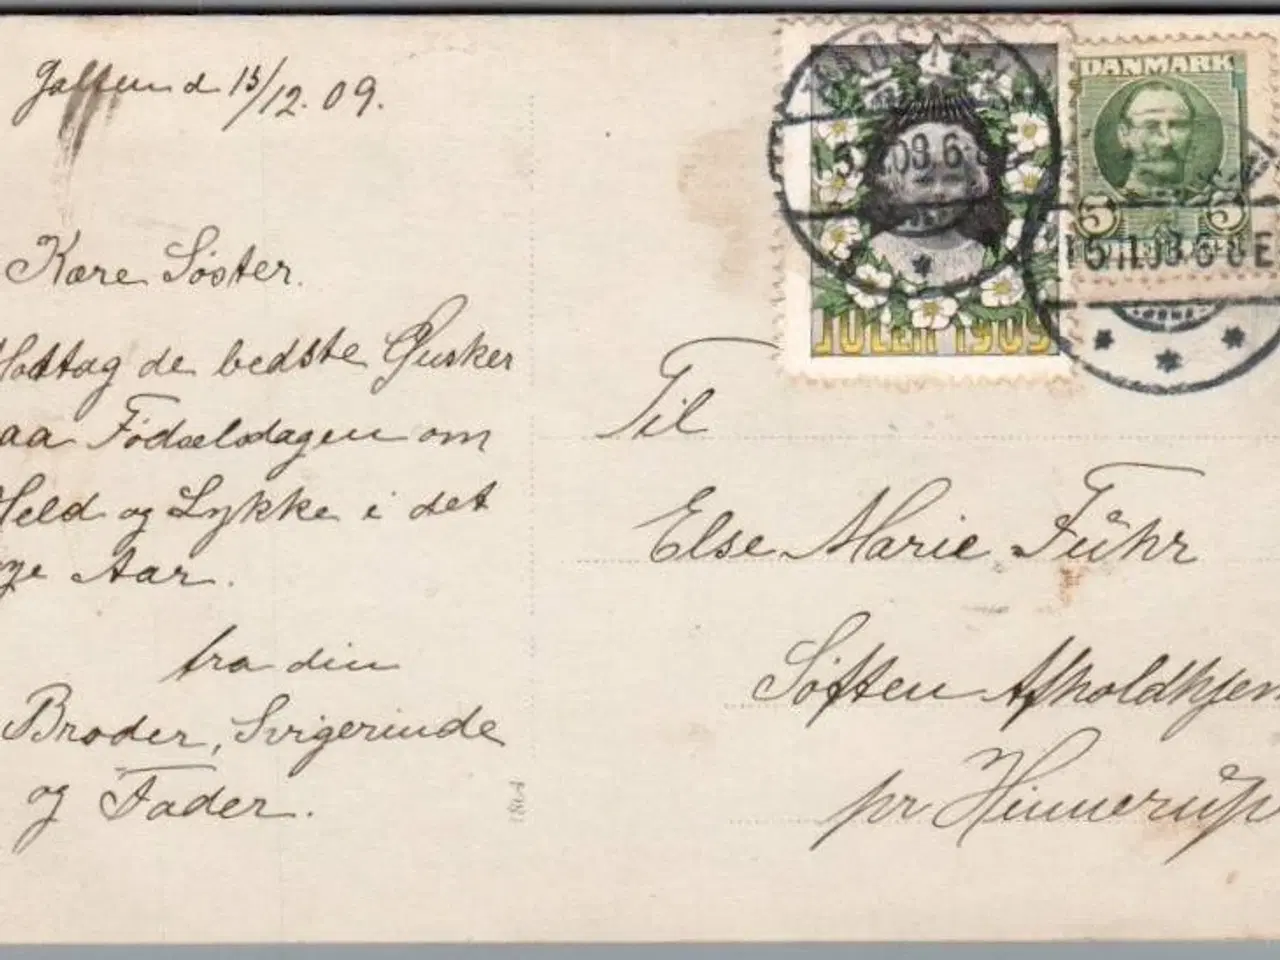 15/12. 09.
Kære Søster.
Modtag de bedste Ønsker
paa Födselsdagen om
Held og Lykke i det
nye Aar.
fra din
Broder, Svigerinde
og Fader.
DANMARK
5 5
JULEN 1909
Til
Else Marie Führ
Søften Afholdshjem
pr Hinnerup